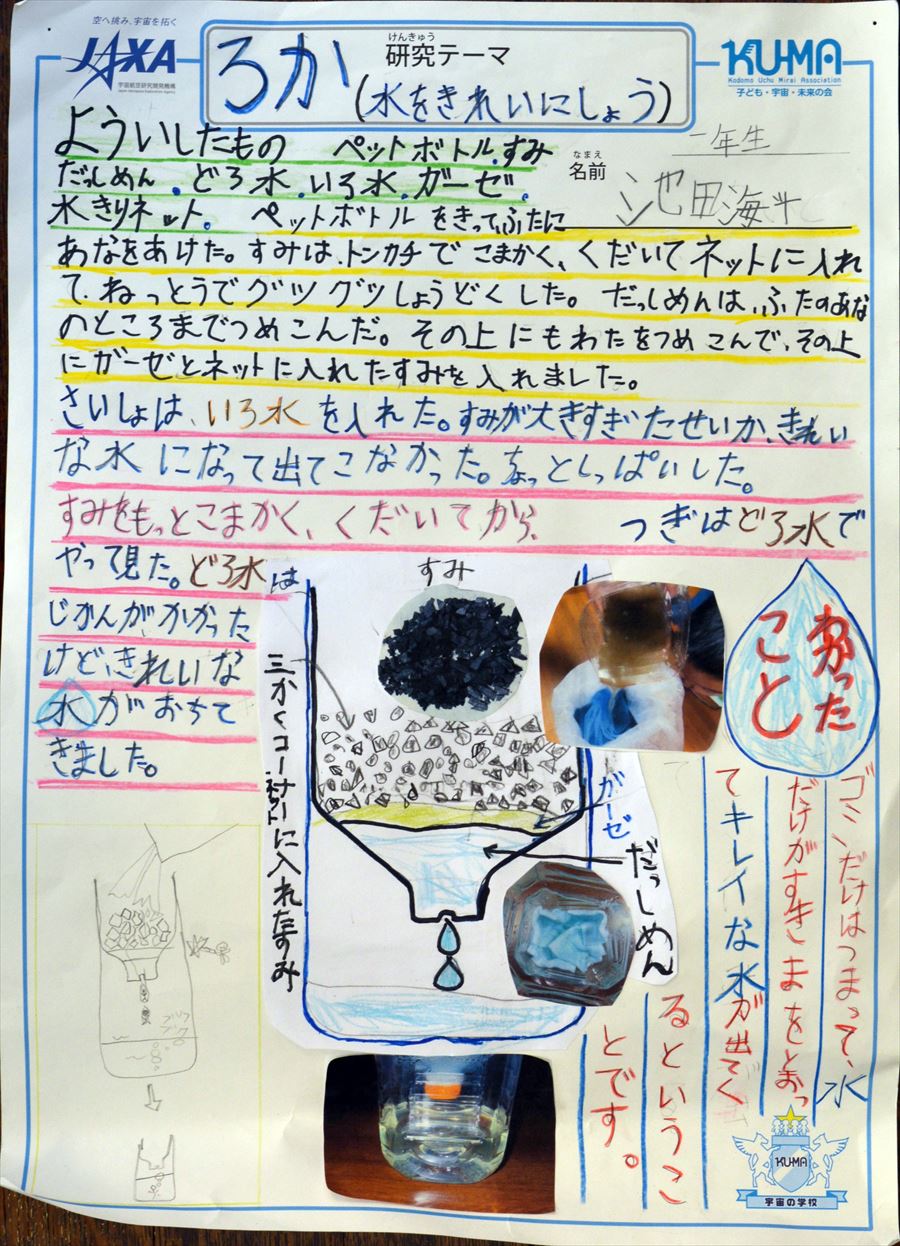 空へ挑み、宇宙を拓く
JAXA
宇宙航空研究開発機構
Japan Aerospace Exploration Agency
けんきゅう
研究テーマ
ろか
(水をきれいにしょう)
KUMA
Kodomo Uchu Mirai Association
子ども・宇宙・未来の会
なまえ
名前
二年生
池田海斗
よういしたもの ペットボトル.すみ
だっしめん.どろ水.いろ水.ガーゼ.
水きりネット。 ペットボトルをきってふたに
あなをあけた。すみは、トンカチでこまかく、くだいてネットに入れ
て、ねっとうでグツグツしょうどくした。だっしめんは、ふたのあな
のところまでつめこんだ。その上にもわたをつめこんで、その上
にガーゼとネットに入れたすみを入れました。
さいしょは、いろ水を入れた。すみが大きすぎたせいか、きれい
な水になって出てこなかった。ちょっとしっぱいした。
すみをもっとこまかく、くだいてから、 つぎはどろ水で
やって見た。どろ水は
じかんが、かかった
けど、きれいな
水がおちて
きました。
すみ
三かくコーナーに入れたすみ
ネット
ガーゼ
だっしめん
わかった
こと
ゴミだけはつまって、水
だけがすきまをとおっ
てキレイな水が出てく
るというこ
とです。
KUMA
宇宙の学校